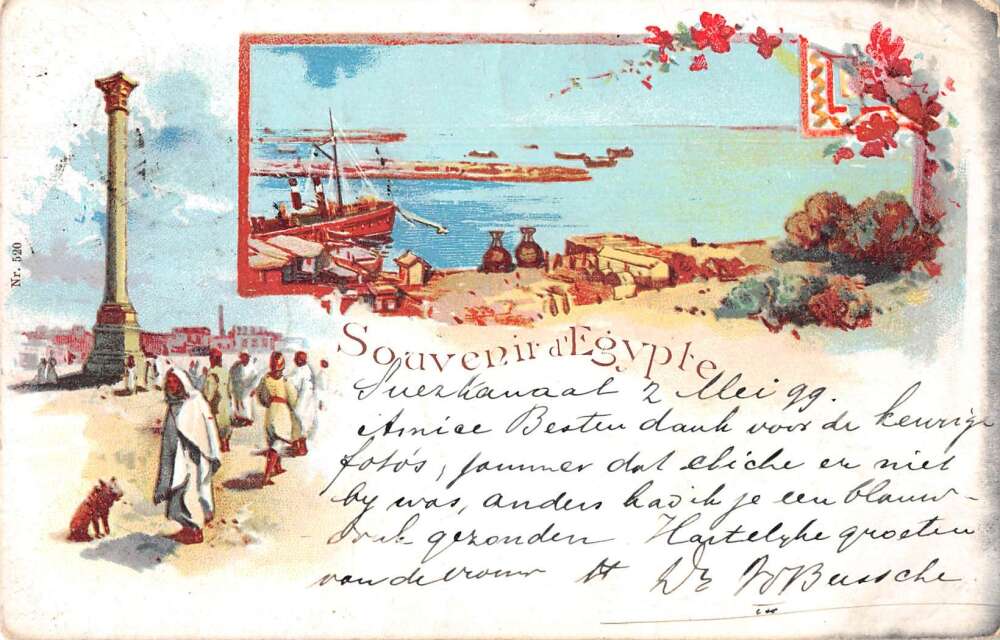 Nr. 520
Souvenir d'Egypte
Suezkanaal 2 Mei 99.
Amice Besten dank voor de keurige
foto's, jammer dat cliché er niet
by was, anders had ik je een blauw-
druk gezonden Hartelyke groeten
van de vrouw tt WvBussche